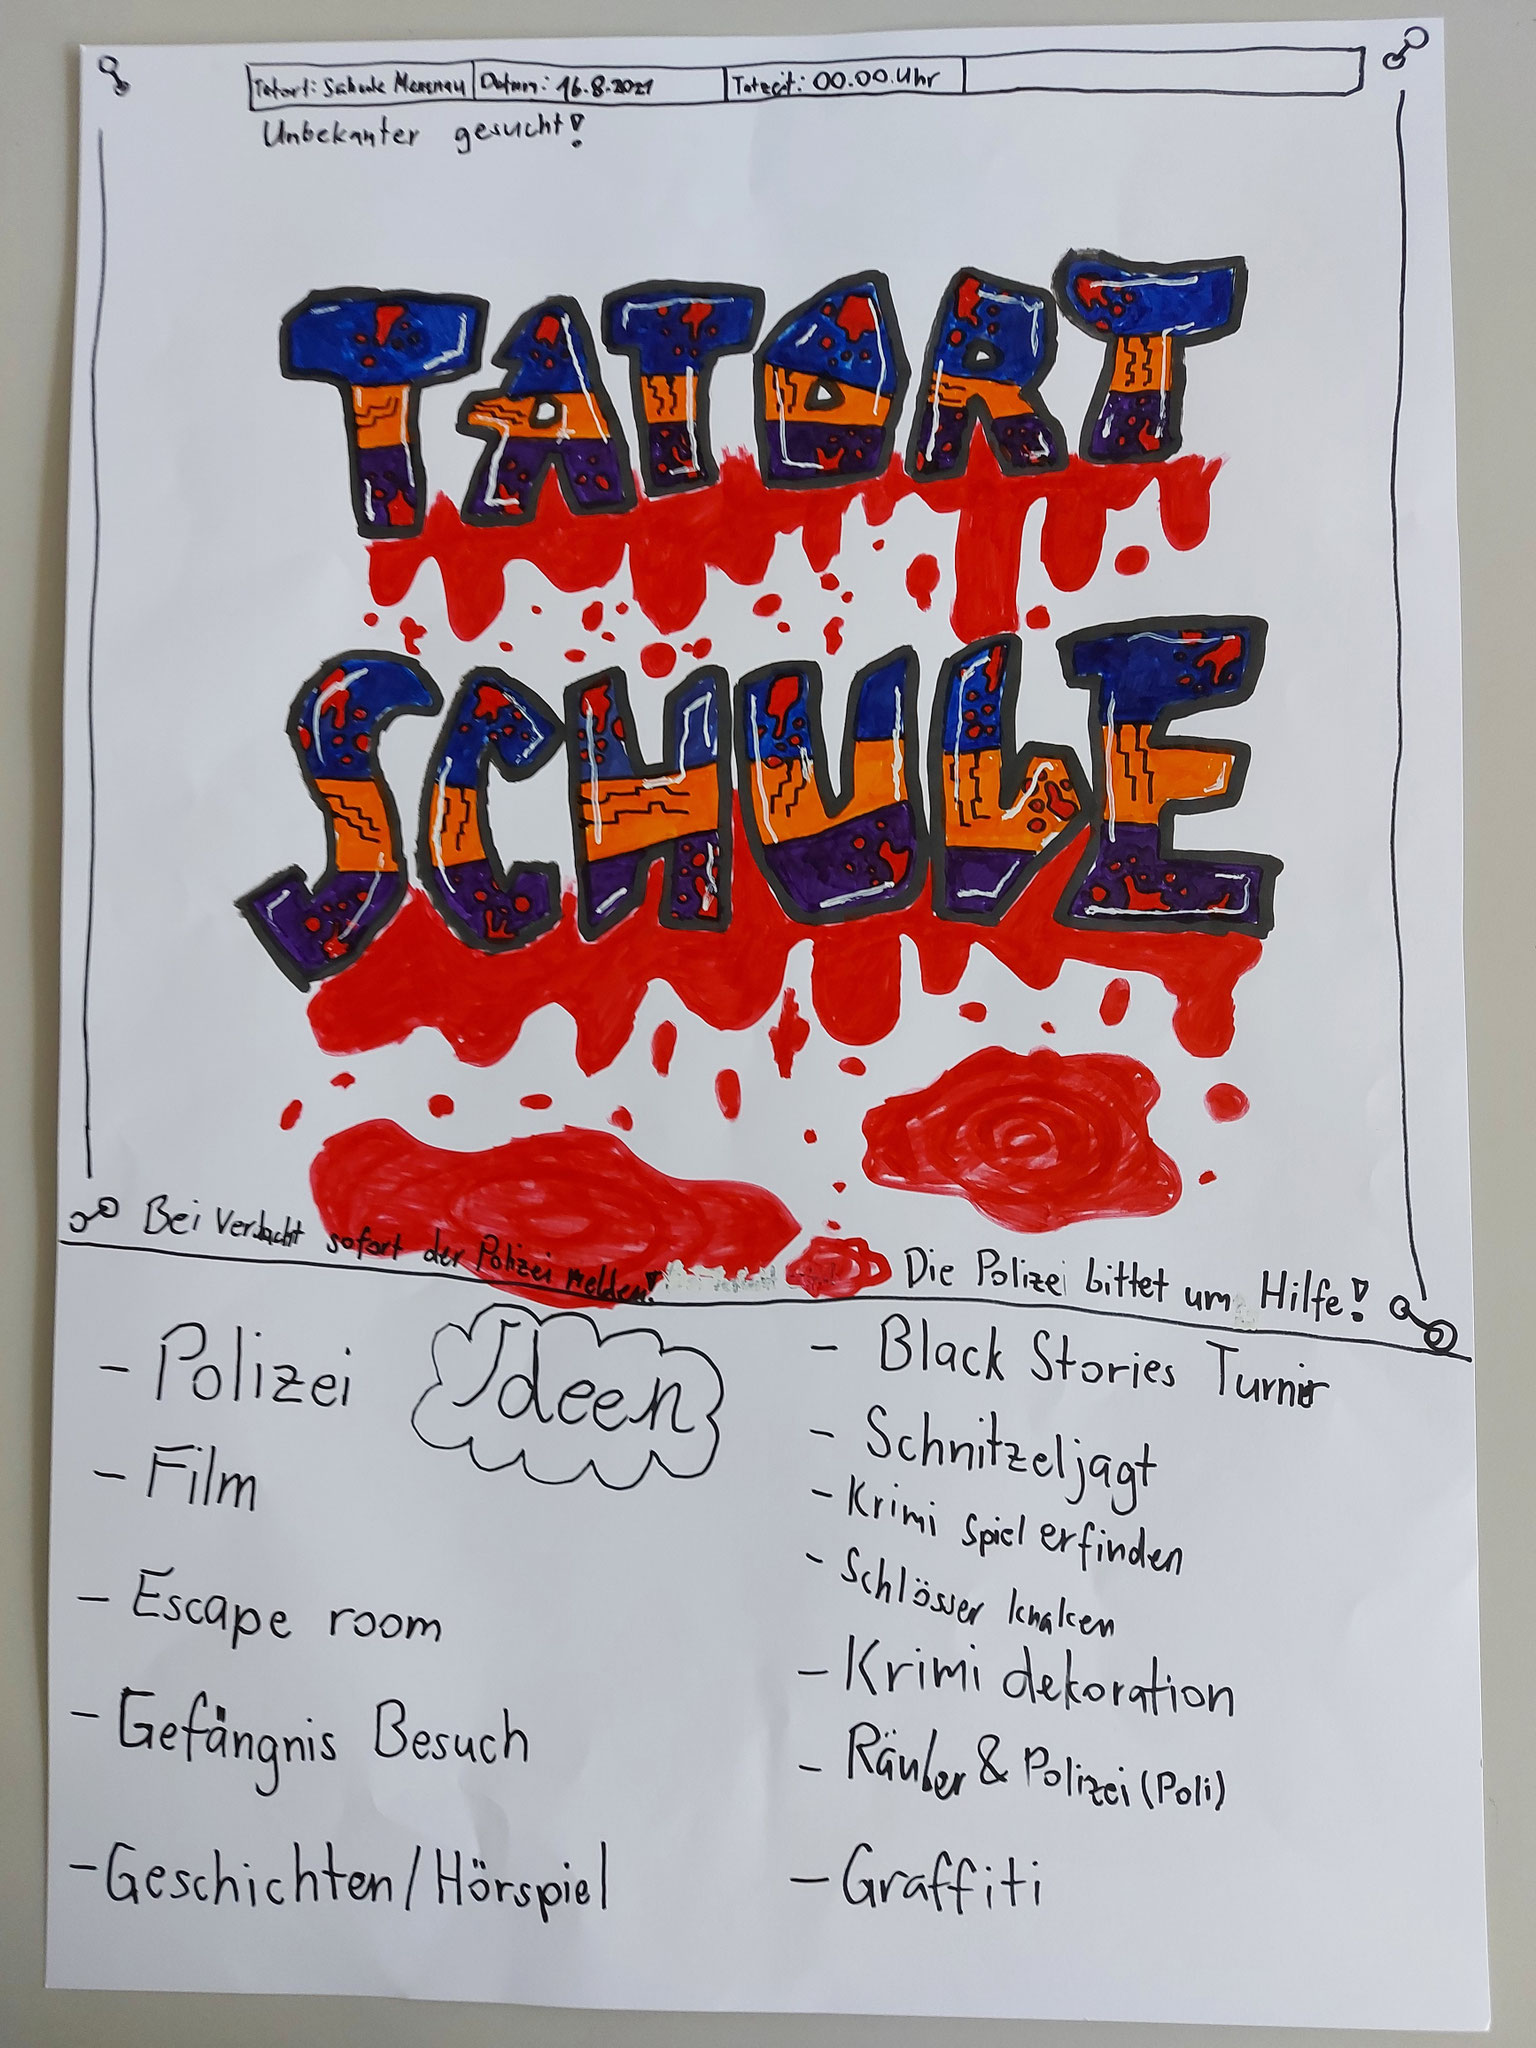 Tatort: Schule Merenau Datum: 16.8.2021 Tatzeit: 00.00.Uhr
Unbekanter gesucht!
TATORT
SCHULE
Bei Verdacht sofort der Polizei melden! Die Polizei bittet um Hilfe!
Ideen
- Polizei
- Film
- Escape room
- Gefängnis Besuch
- Geschichten/Hörspiel
- Black Stories Turnir
- Schnitzeljagt
- Krimi spiel erfinden
- Schlösser knaken
- Krimi dekoration
- Räuber & Polizei (Poli)
- Graffiti